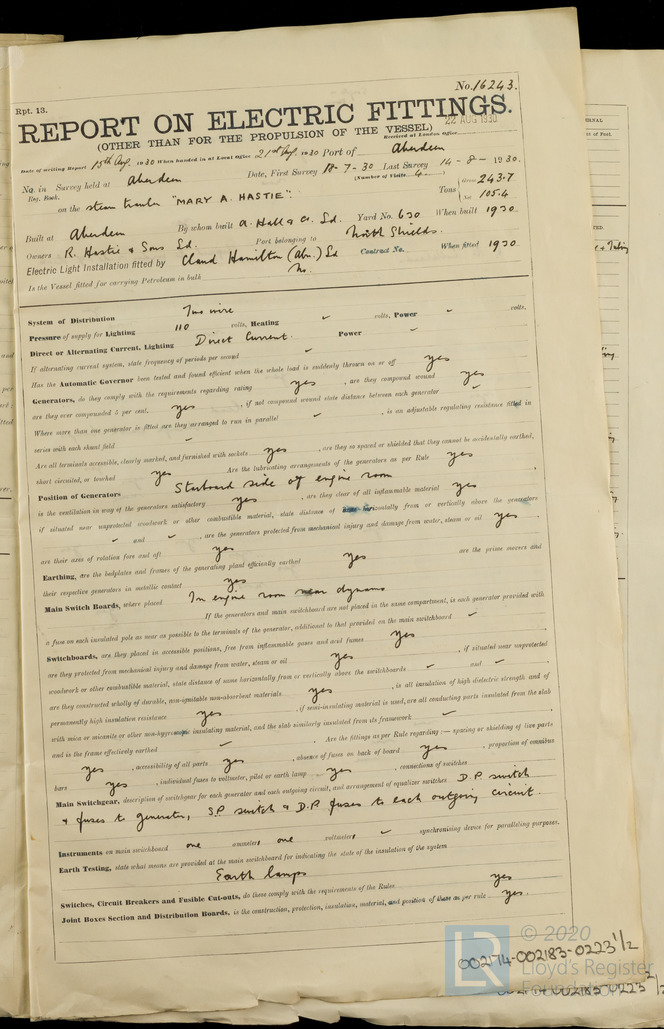 Rpt. 13.
No. 16243.
REPORT ON ELECTRIC FITTINGS.
22 AUG 1930
(OTHER THAN FOR THE PROPULSION OF THE VESSEL)
Received at London Office
Date of writing Report 15th Aug. 1930 When handed in at Local Office 21st Aug. 1930 Port of Aberdeen
No. in Survey held at Aberdeen Date, First Survey 18-7-30 Last Survey 14-8-1930.
Reg. Book. (Number of Visits 4)
on the steam trawler "MARY A. HASTIE". Tons Gross 243.7 Net 105.4
Built at Aberdeen By whom built A. Hall & Co. Ld. Yard No. 630 When built 1930
Owners R. Hastie & Sons Ld. Port belonging to North Shields.
Electric Light Installation fitted by Claud Hamilton (Abn.) Ld Contract No. When fitted 1930
Is the Vessel fitted for carrying Petroleum in bulk No.
System of Distribution Two wire
Pressure of supply for Lighting 110 volts, Heating ✓ volts, Power ✓ volts.
Direct or Alternating Current, Lighting Direct Current. Power ✓
If alternating current system, state frequency of periods per second ✓
Has the Automatic Governor been tested and found efficient when the whole load is suddenly thrown on or off yes
Generators, do they comply with the requirements regarding rating yes, are they compound wound yes
are they over compounded 5 per cent. yes, if not compound wound state distance between each generator ✓
Where more than one generator is fitted are they arranged to run in parallel ✓, is an adjustable regulating resistance fitted in
series with each shunt field ✓
Are all terminals accessible, clearly marked, and furnished with sockets yes, are they so spaced or shielded that they cannot be accidentally earthed,
short circuited, or touched yes Are the lubricating arrangements of the generators as per Rule yes
Position of Generators Starboard side of engine room
is the ventilation in way of the generators satisfactory yes, are they clear of all inflammable material yes
if situated near unprotected woodwork or other combustible material, state distance of same horizontally from or vertically above the generators
✓ and ✓, are the generators protected from mechanical injury and damage from water, steam or oil yes,
are their axes of rotation fore and aft yes
Earthing, are the bedplates and frames of the generating plant efficiently earthed yes are the prime movers and
their respective generators in metallic contact yes
Main Switch Boards, where placed In engine room near dynamo
If the generators and main switchboard are not placed in the same compartment, is each generator provided with
a fuse on each insulated pole as near as possible to the terminals of the generator, additional to that provided on the main switchboard ✓
Switchboards, are they placed in accessible positions, free from inflammable gases and acid fumes yes
are they protected from mechanical injury and damage from water, steam or oil yes, if situated near unprotected
woodwork or other combustible material, state distance of same horizontally from or vertically above the switchboards ✓ and ✓,
are they constructed wholly of durable, non-ignitable non-absorbent materials yes, is all insulation of high dielectric strength and of
permanently high insulation resistance yes, if semi-insulating material is used, are all conducting parts insulated from the slab
with mica or micanite or other non-hygroscopic insulating material, and the slab similarly insulated from its framework ✓
and is the frame effectively earthed ✓. Are the fittings as per Rule regarding :— spacing or shielding of live parts
yes, accessibility of all parts yes, absence of fuses on back of board yes, proportion of omnibus
bars yes, individual fuses to voltmeter, pilot or earth lamp yes, connections of switches
Main Switchgear, description of switchgear for each generator and each outgoing circuit, and arrangement of equalizer switches D.P. switch
& fuses to generator, S.P. switch & D.P. fuses to each outgoing circuit.
Instruments on main switchboard one ammeters one voltmeters ✓ synchronising device for paralleling purposes.
Earth Testing, state what means are provided at the main switchboard for indicating the state of the insulation of the system
Earth lamps
Switches, Circuit Breakers and Fusible Cut-outs, do these comply with the requirements of the Rules yes
Joint Boxes Section and Distribution Boards, is the construction, protection, insulation, material, and position of these as per rule yes.
© 2020
LR Lloyd's Register
Foundation
002174-002183-0223 1/2